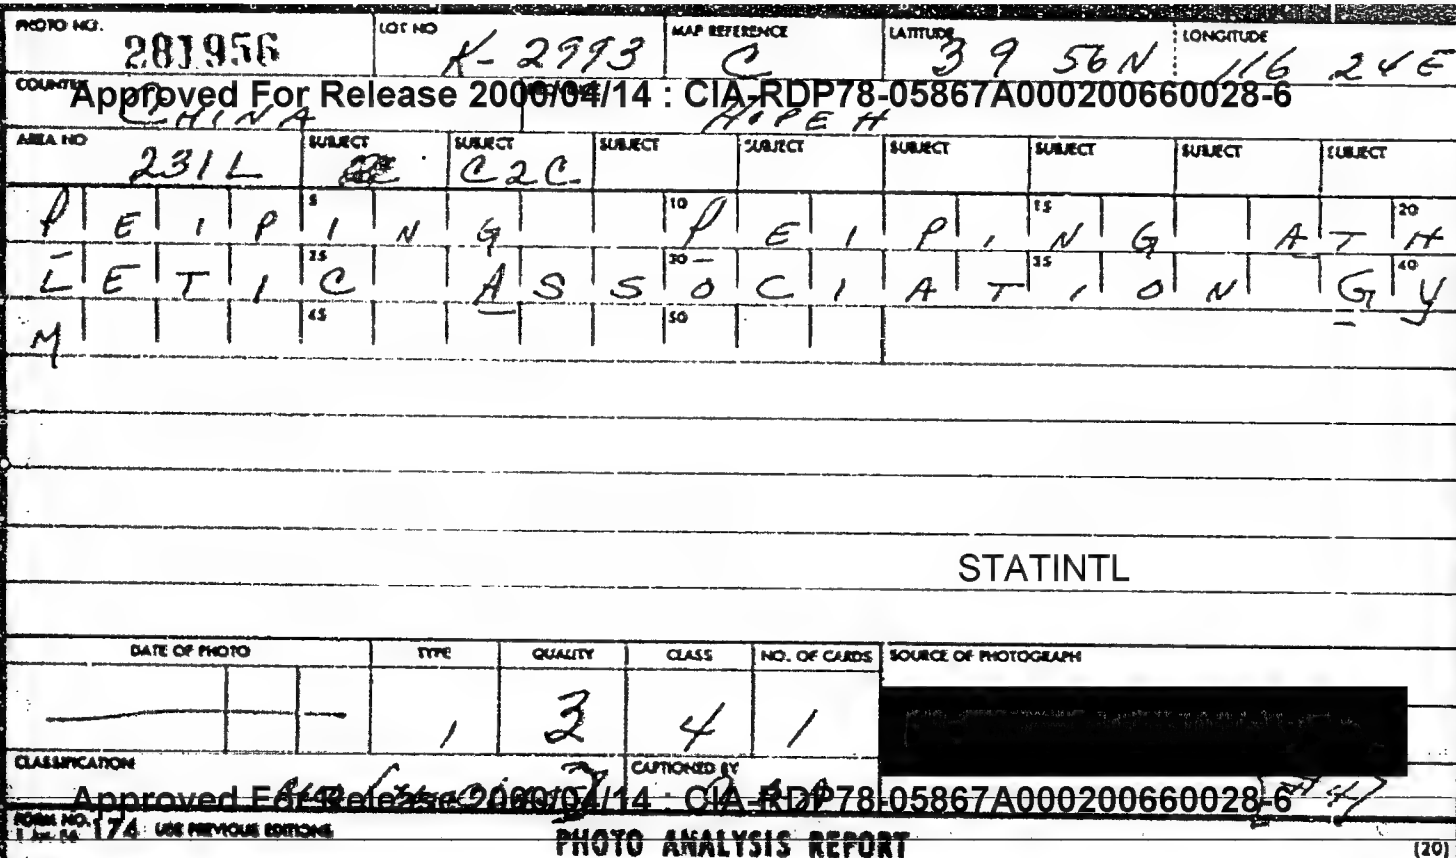 PHOTO NO. LOT NO MAP REFERENCE LATITUDE LONGITUDE
281956 K-2993 C 39 56N 116 24E
COUNTRY
Approved For Release 2000/04/14 : CIA-RDP78-05867A000200660028-6
CHINA HOPEH
AREA NO SUBJECT SUBJECT SUBJECT SUBJECT SUBJECT SUBJECT SUBJECT SUBJECT
231L C2C
5 10 15 20
PEIPING PEIPING ATH
25 30 35 40
LETIC ASSOCIATION GY
45 50
M
STATINTL
DATE OF PHOTO TYPE QUALITY CLASS NO. OF CARDS SOURCE OF PHOTOGRAPH
1 3 4 1
CLASSIFICATION CAPTIONED BY
Approved For Release 2000/04/14 : CIA-RDP78-05867A000200660028-6
FORM NO. 174 USE PREVIOUS EDITIONS
PHOTO ANALYSIS REPORT (20)